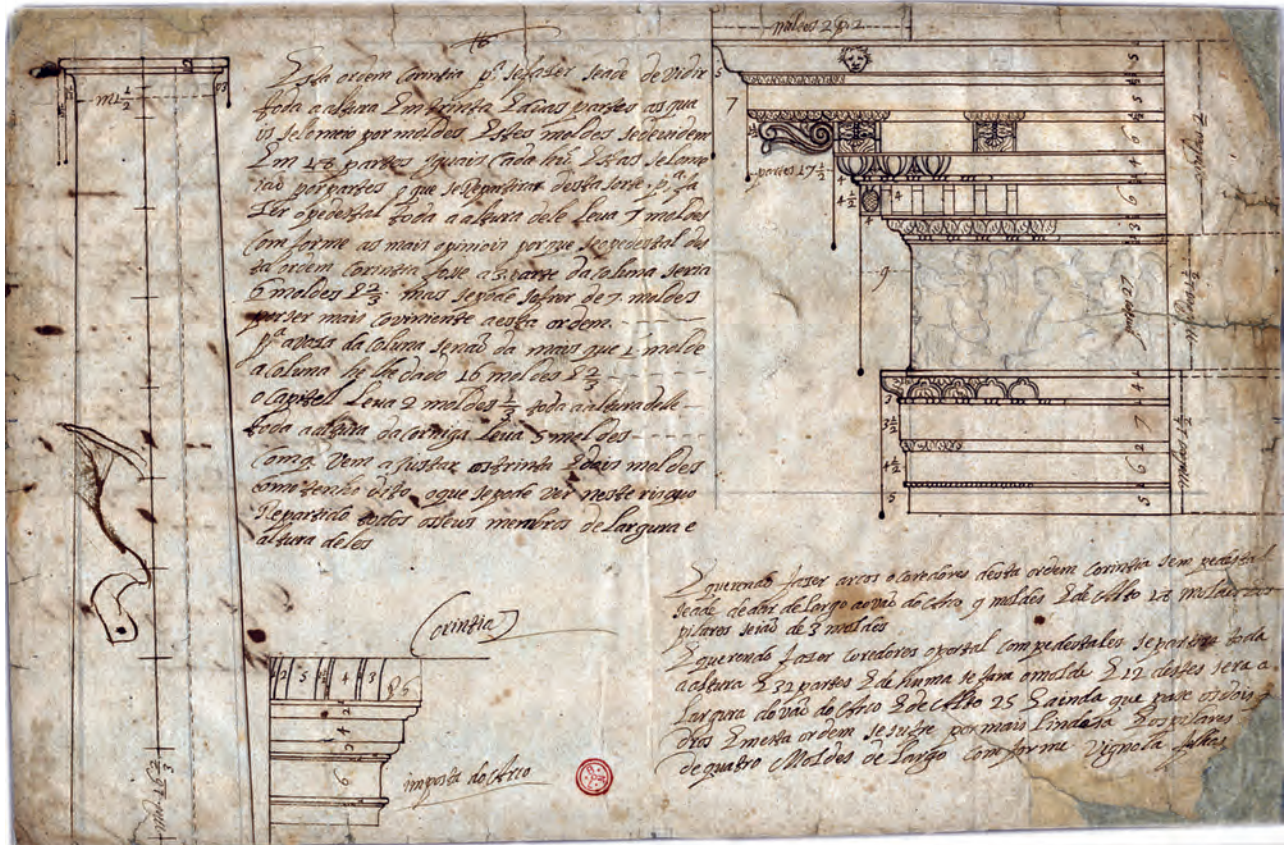 16
Esta ordem Corintia pª. se faser seade devidir
toda a altura Em trinta Eduas partes as qua
is se lomeio por moldes Estes moldes sedeuidem
Em 18 partes yguais Cada hũ Estas se lome
iaõ por partes o que se Repartiraa desta sorte. pª. fa
Ser o pedestal toda a altura dele Leua 7 moldes
Com forme as mais opiniois porque se o pedestal des
ta ordem Corintia fose a 3. parte da coluna seria
6 moldes E 2/3 mas se pode sofrer de 7. moldes
por ser mais Coviniente a esta ordem.
pª a vasa da Coluna senaõ da mais que 1. molde
a Coluna he lhe dado 16 moldes E 2/3
O Capitell Leua 2 moldes 1/3 toda a altura delle
toda a altura da Corniga Leua 5 moldes
Com q. Vem a Justar os trinta Edois moldes
Como tenho dito o que se pode ver neste risquo
Repartido todos os seus membros de Largura e
altura deles
Corintia
imposta do Arco
moldes 2 p. 2
partes 17 1/2
partes 27
moldes 1 1/2
moldes 1 1/2
E querendo faser arcos o coredores desta ordem Corintia sem pedestal
seade de dar de Largo ao vaõ do Arco 9 moldes E de Alto 18 moldes
pilares seiaõ de 3 moldes
E querendo faser Coredores o portal Com pedestales se partira toda
a altura E 32 partes E de huma se fara o molde E 12 destes sera a
Largura do vaõ do Arco E de Alto 25 E ainda que pase os dois
dros Em esta ordem se sufre por mais Lindesa E os pilares
de quatro Moldes de Largo Com forme Vignola